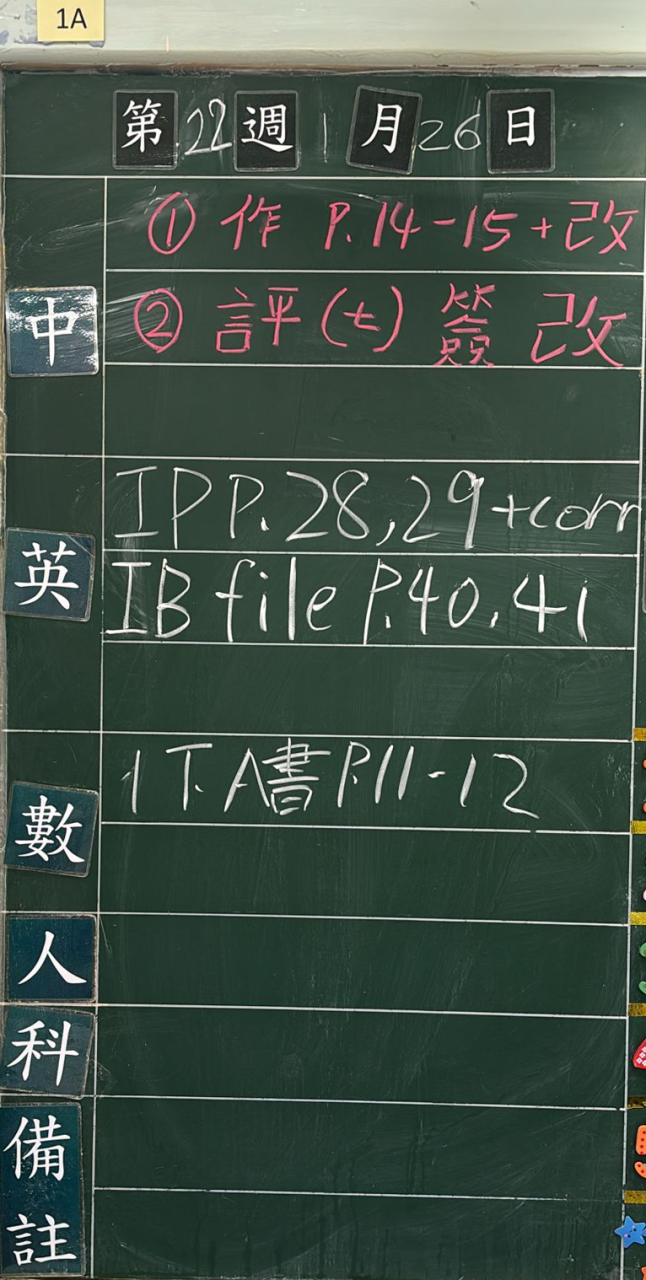 1A
第22週1月26日
中
① 作 P.14-15+改
② 評(七) 簽 改
英
IP P.28,29+corr
IB file P.40,41
數
1下A書P.11-12
人
科
備
註